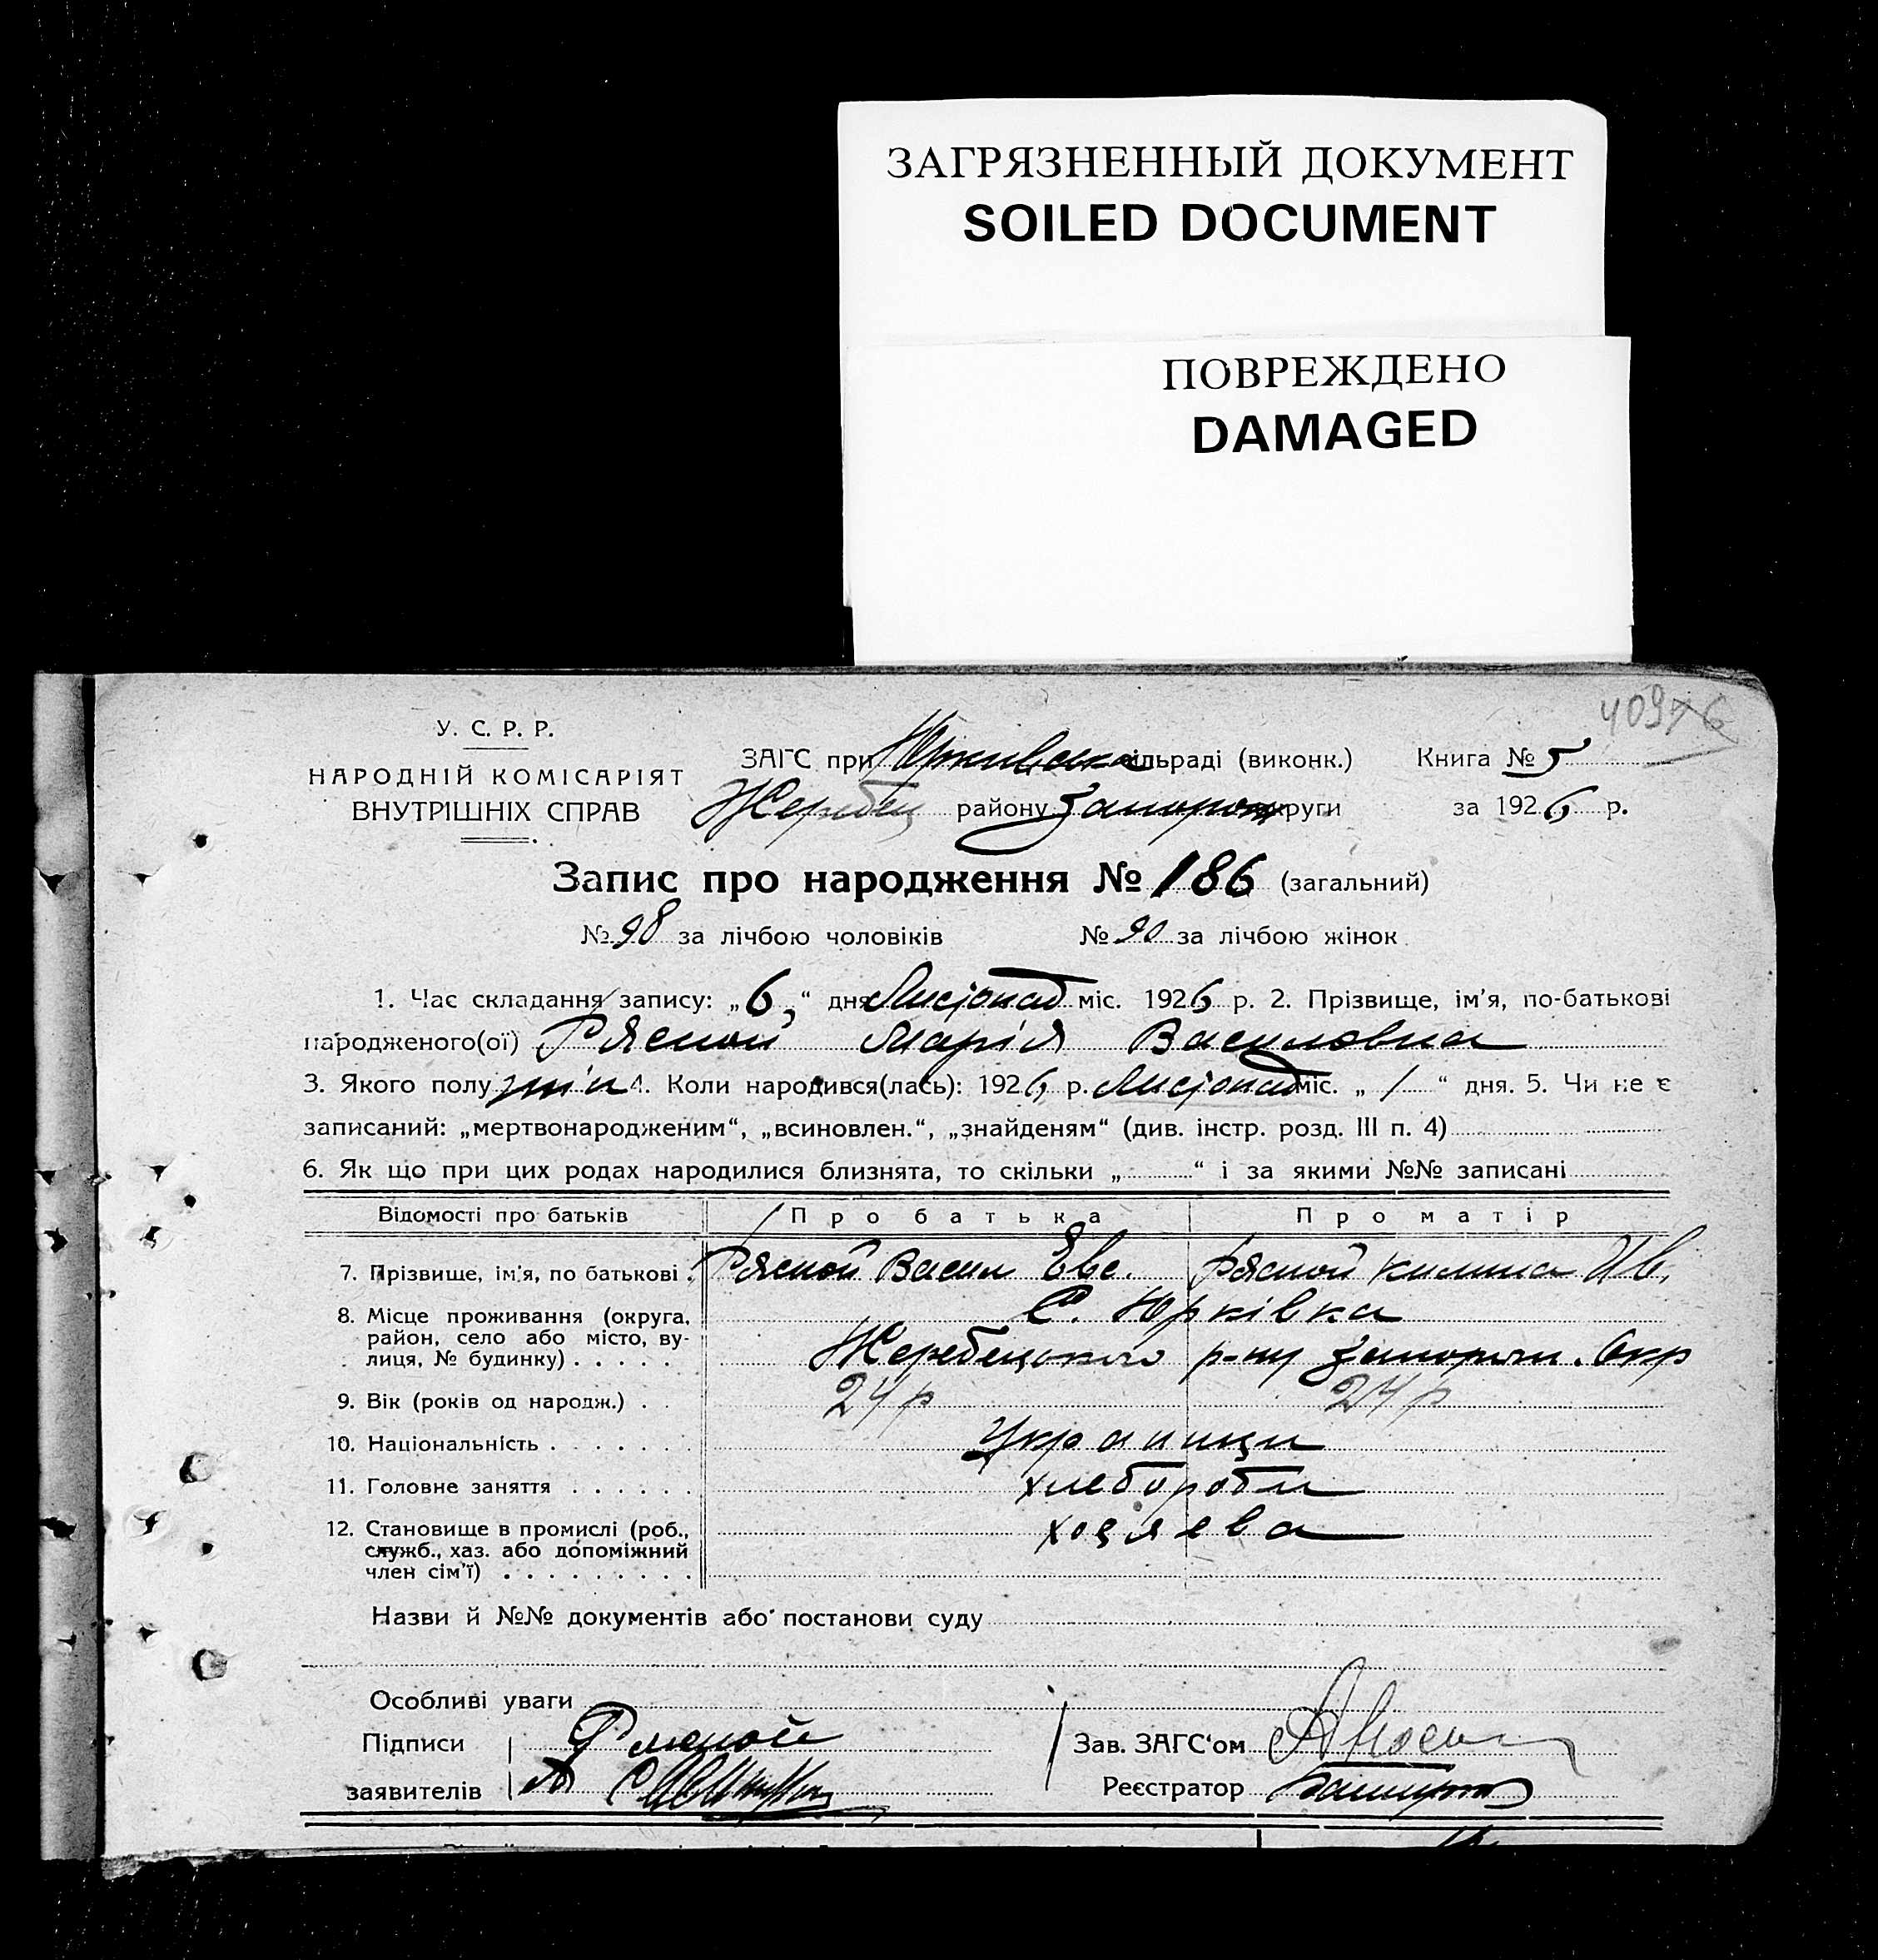 ЗАГРЯЗНЕННЫЙ ДОКУМЕНТ
SOILED DOCUMENT
ПОВРЕЖДЕНО
DAMAGED
У. С. Р. Р.
НАРОДНІЙ КОМІСАРІЯТ
ВНУТРІШНІХ СПРАВ
ЗАГС при Юрківська сільраді (виконк.) Книга № 5
Жеребец району Запорож округи за 1926 р.
Запис про народження № 186 (загальний)
№ 98 за лічбою чоловіків № 90 за лічбою жінок
1. Час складання запису: „6“ дня Листопад міс. 1926 р. 2. Прізвище, ім'я, по-батькові
народженого(ої) Рясной Марія Василовна
3. Якого полу жін 4. Коли народився(лась): 1926 р. Листопад міс. „1“ дня. 5. Чи не є
записаний: „мертвонародженим“, „всиновлен.“, „знайденям“ (див. інстр. розд. III п. 4)
6. Як що при цих родах народилися близнята, то скільки „ “ і за якими №№ записані
Відомості про батьків Про батька Про матір
7. Прізвище, ім'я, по батькові. Рясной Васил Евс. Рясной Килина Ив.
8. Місце проживання (округа, С. Юрківка
район, село або місто, ву-
лиця, № будинку) . . . . . Жеребецького р-ну Запорож. Окр
9. Вік (років од народж.) . . 24 р 24 р
10. Національність . . . . . . . Украинци
11. Головне заняття . . . . . . хлебороби
12. Становище в промислі (роб.,
служб., хаз. або допоміжний
член сім'ї) . . . . . . . . .
Назви й №№ документів або постанови суду
Особливі уваги
Підписи Рясной Зав. ЗАГС'ом
заявителів Реєстратор